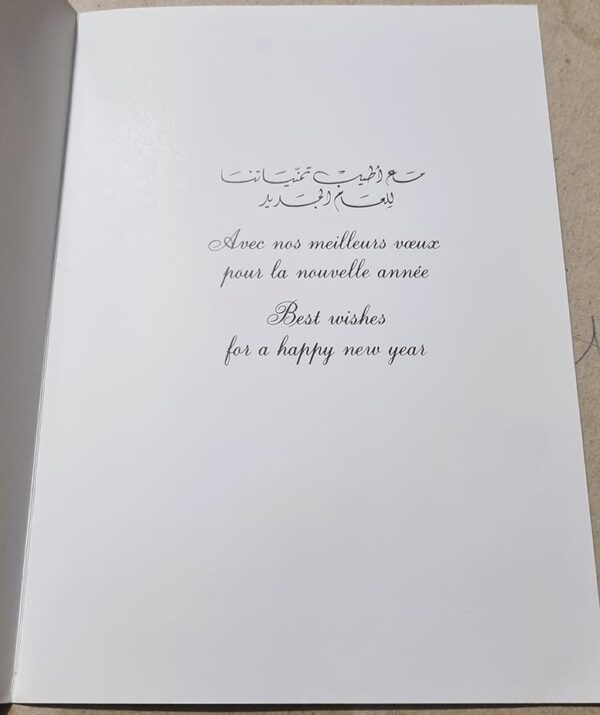 مع أطيب تمنّياتنا
للعام الجديد
Avec nos meilleurs vœux
pour la nouvelle année
Best wishes
for a happy new year